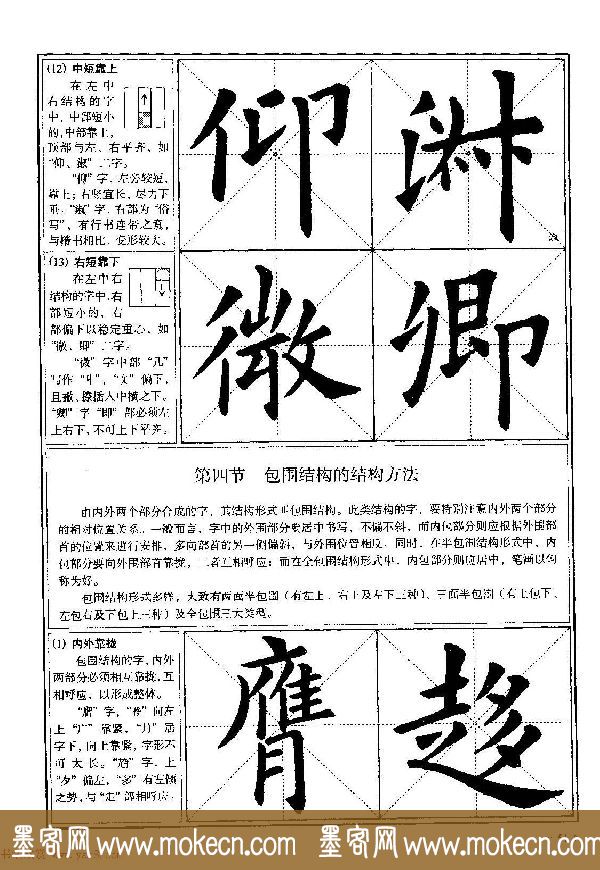 (12) 中短靠上
在左中
右结构的字
中，中部短小
的，中部靠上，
顶部与左、右平齐，如
“仰、淑”二字。
“仰”字，左旁较短，
靠上；右竖宜长，尽力下
垂。“淑”字，右部为“俗
写”，有行书连带之意，
与楷书相比，变形较大。
仰
淑
(13) 右短靠下
在左中右
结构的字中，右
部短小的，右
部偏下以稳定重心，如
“微、卿”二字。
“微”字中部“几”
写作“口”，“攵”偏下，
且撇、捺插入中横之下。
“卿”字“卩”部必须左
上右下，不可上下平齐。
微
卿
第四节 包围结构的结构方法
由内外两个部分合成的字，其结构形式叫包围结构。此类结构的字，要特别注意内外两个部分
的相对位置关系。一般而言，字中的外围部分要适中书写，不偏不斜，而内包部分则应根据外围部
首的位置来进行安排，多向部首的另一侧偏斜，与外围位置相反。同时，在半包围结构形式中，内
包部分要向外围部首靠拢，二者互相呼应；而在全包围结构形式中，内包部分则应居中，笔画以匀
称为好。
包围结构形式多样，大致有两面半包围（有左上、右上及左下三种）、三面半包围（有上包下、
左包右及下包上三种）及全包围三大类型。
(1) 内外靠拢
包围结构的字，内外
两部分必须相互靠拢，互
相呼应，以形成整体。
字，向左
上“广”靠紧，“月”居
字下，向上靠紧，字形不
可太长。“趋”字，上
“夕”偏左，“多”有左倾
之势，与“走”部相呼应。
膺
趍
墨客网 www.mokecn.com 墨客网 www.mokecn.com